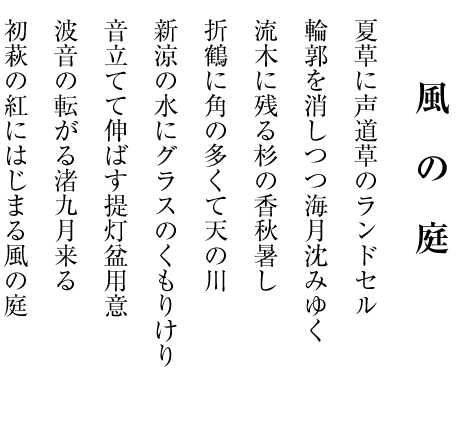 風の庭
夏草に声道草のランドセル
輪郭を消しつつ海月沈みゆく
流木に残る杉の香秋暑し
折鶴に角の多くて天の川
新涼の水にグラスのくもりけり
音立てて伸ばす提灯盆用意
波音の転がる渚九月来る
初萩の紅にはじまる風の庭